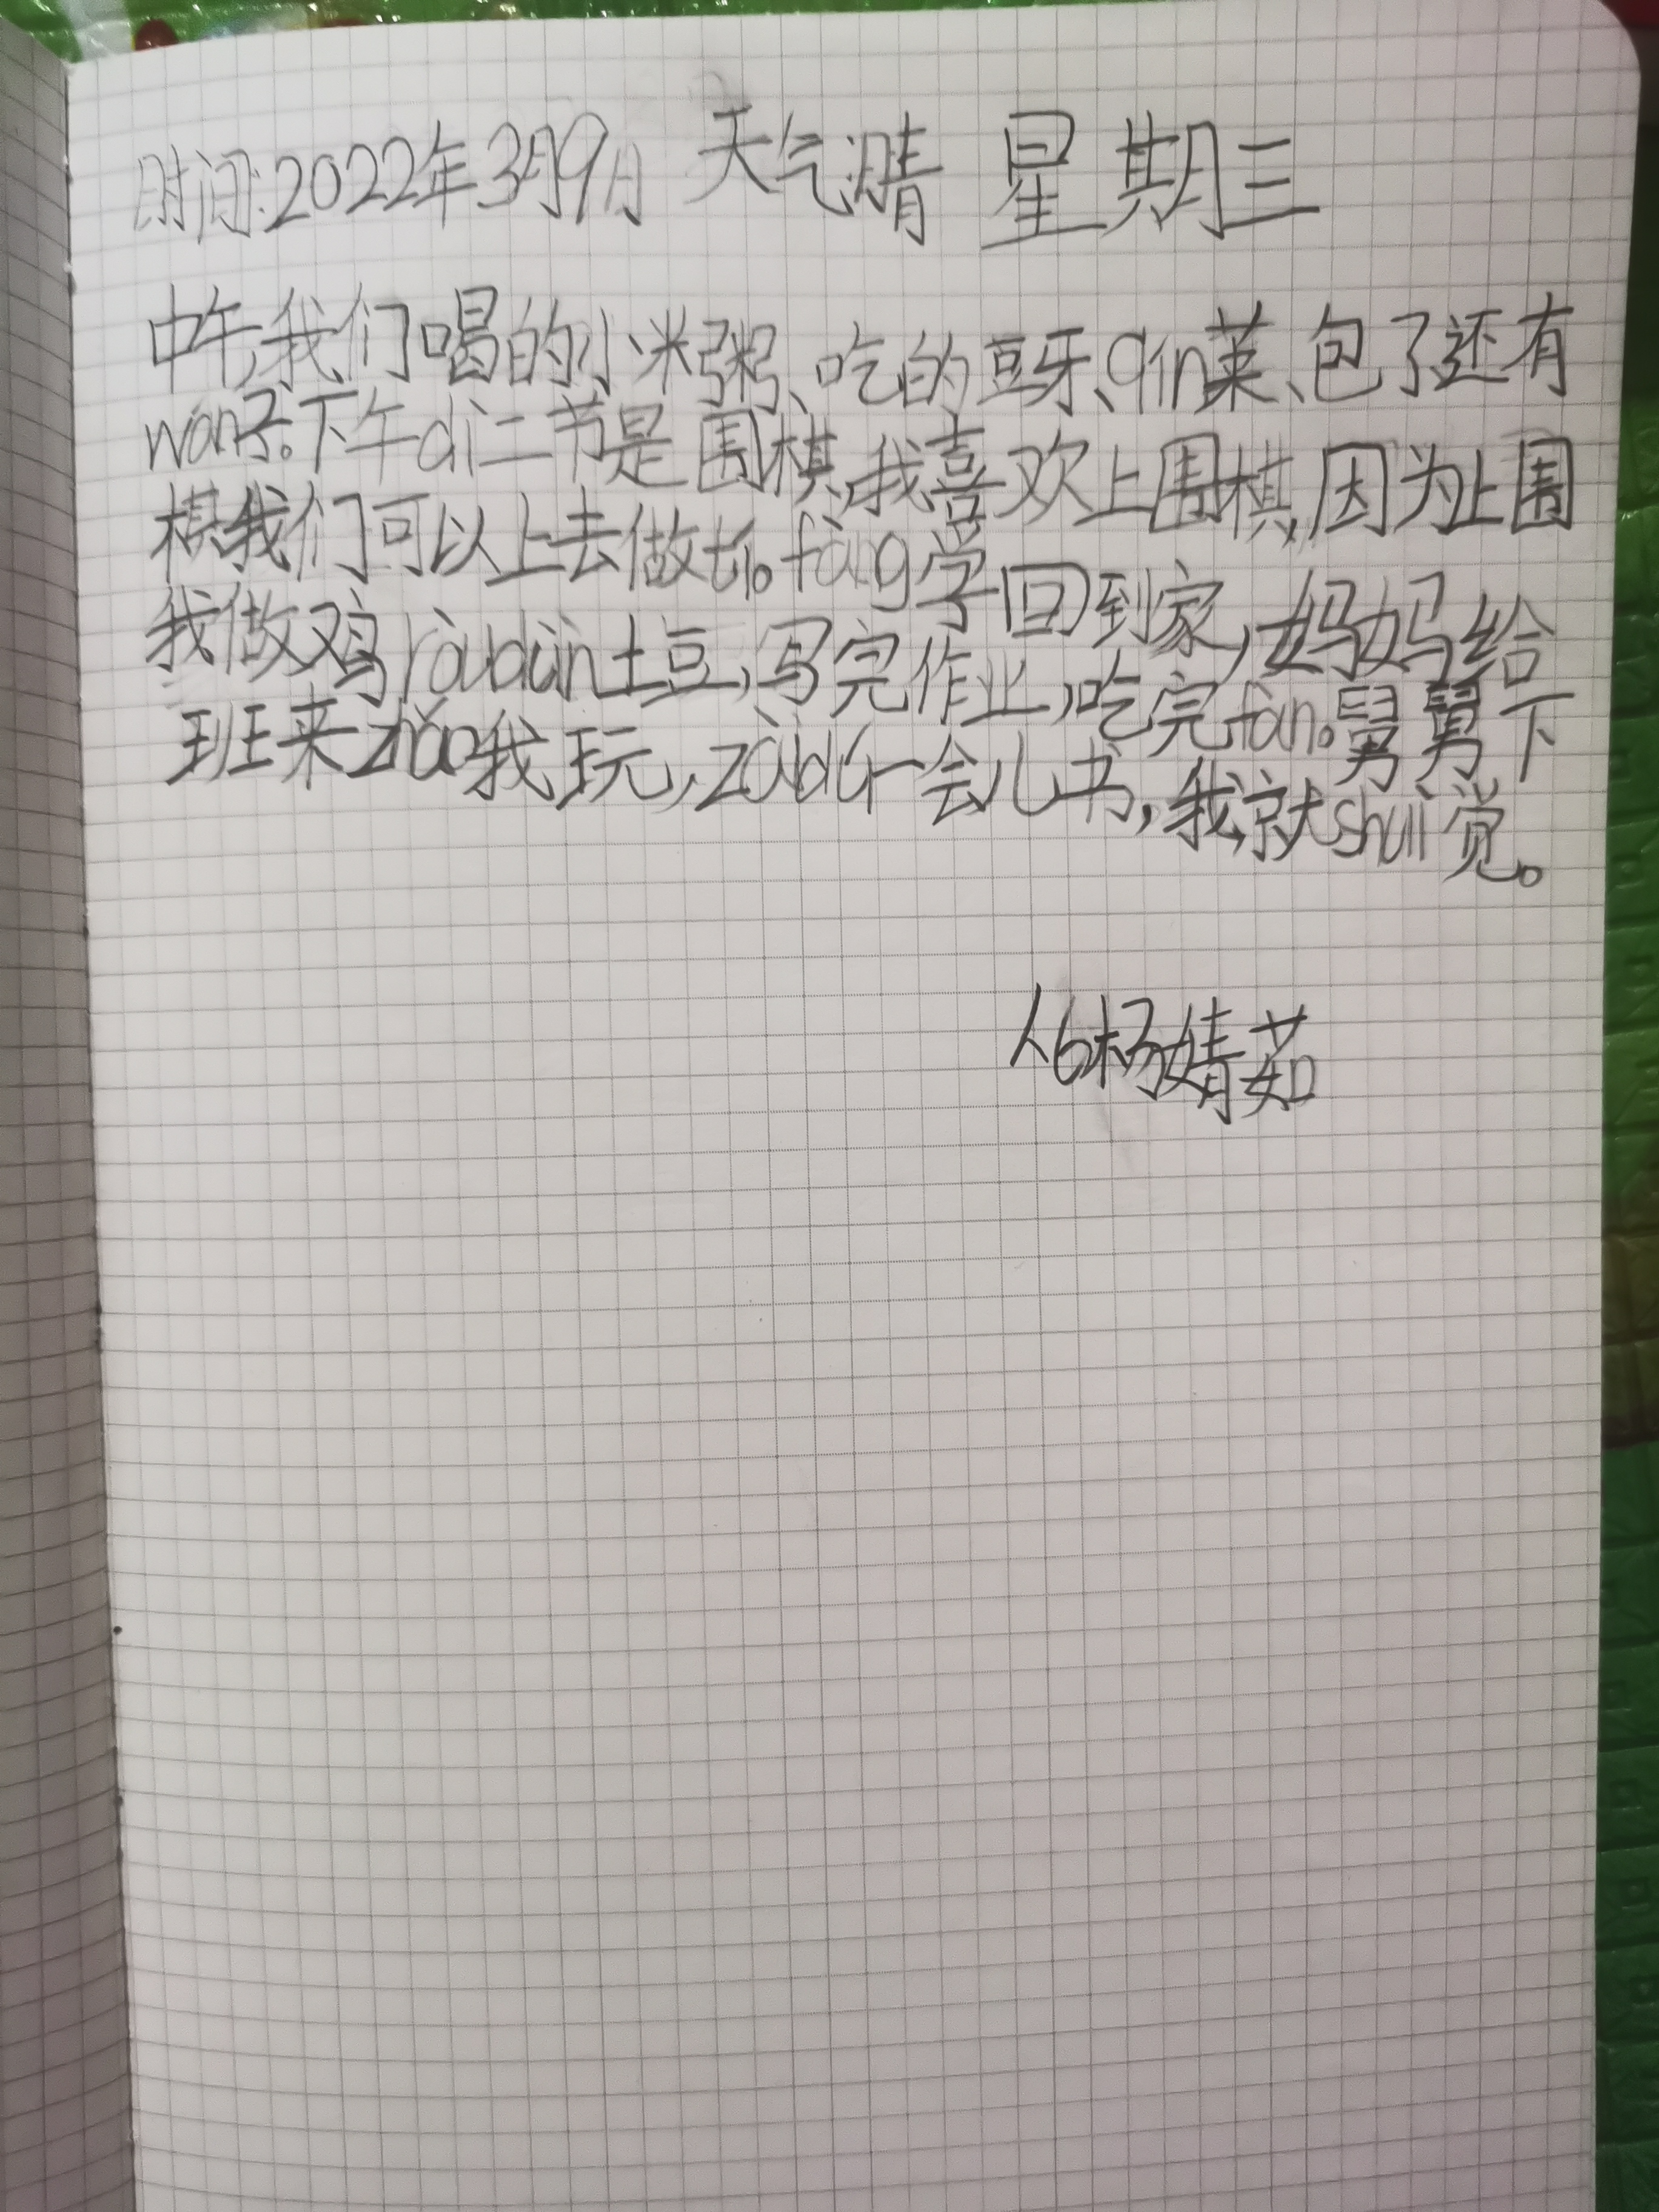 时间:2022年3月9月 天气:晴 星期三
中午,我们喝的小米粥、吃的豆牙、qin菜、包了还有
wan子。下午di二节是围棋,我喜欢上围棋,因为上围
棋我们可以上去做ti。fàng学回到家,妈妈给
我做鸡ròudùn土豆,写完作业,吃完fàn。舅舅下
班来zhǎo我玩,zàidú一会儿书,我就shuì觉。
杨婧茹